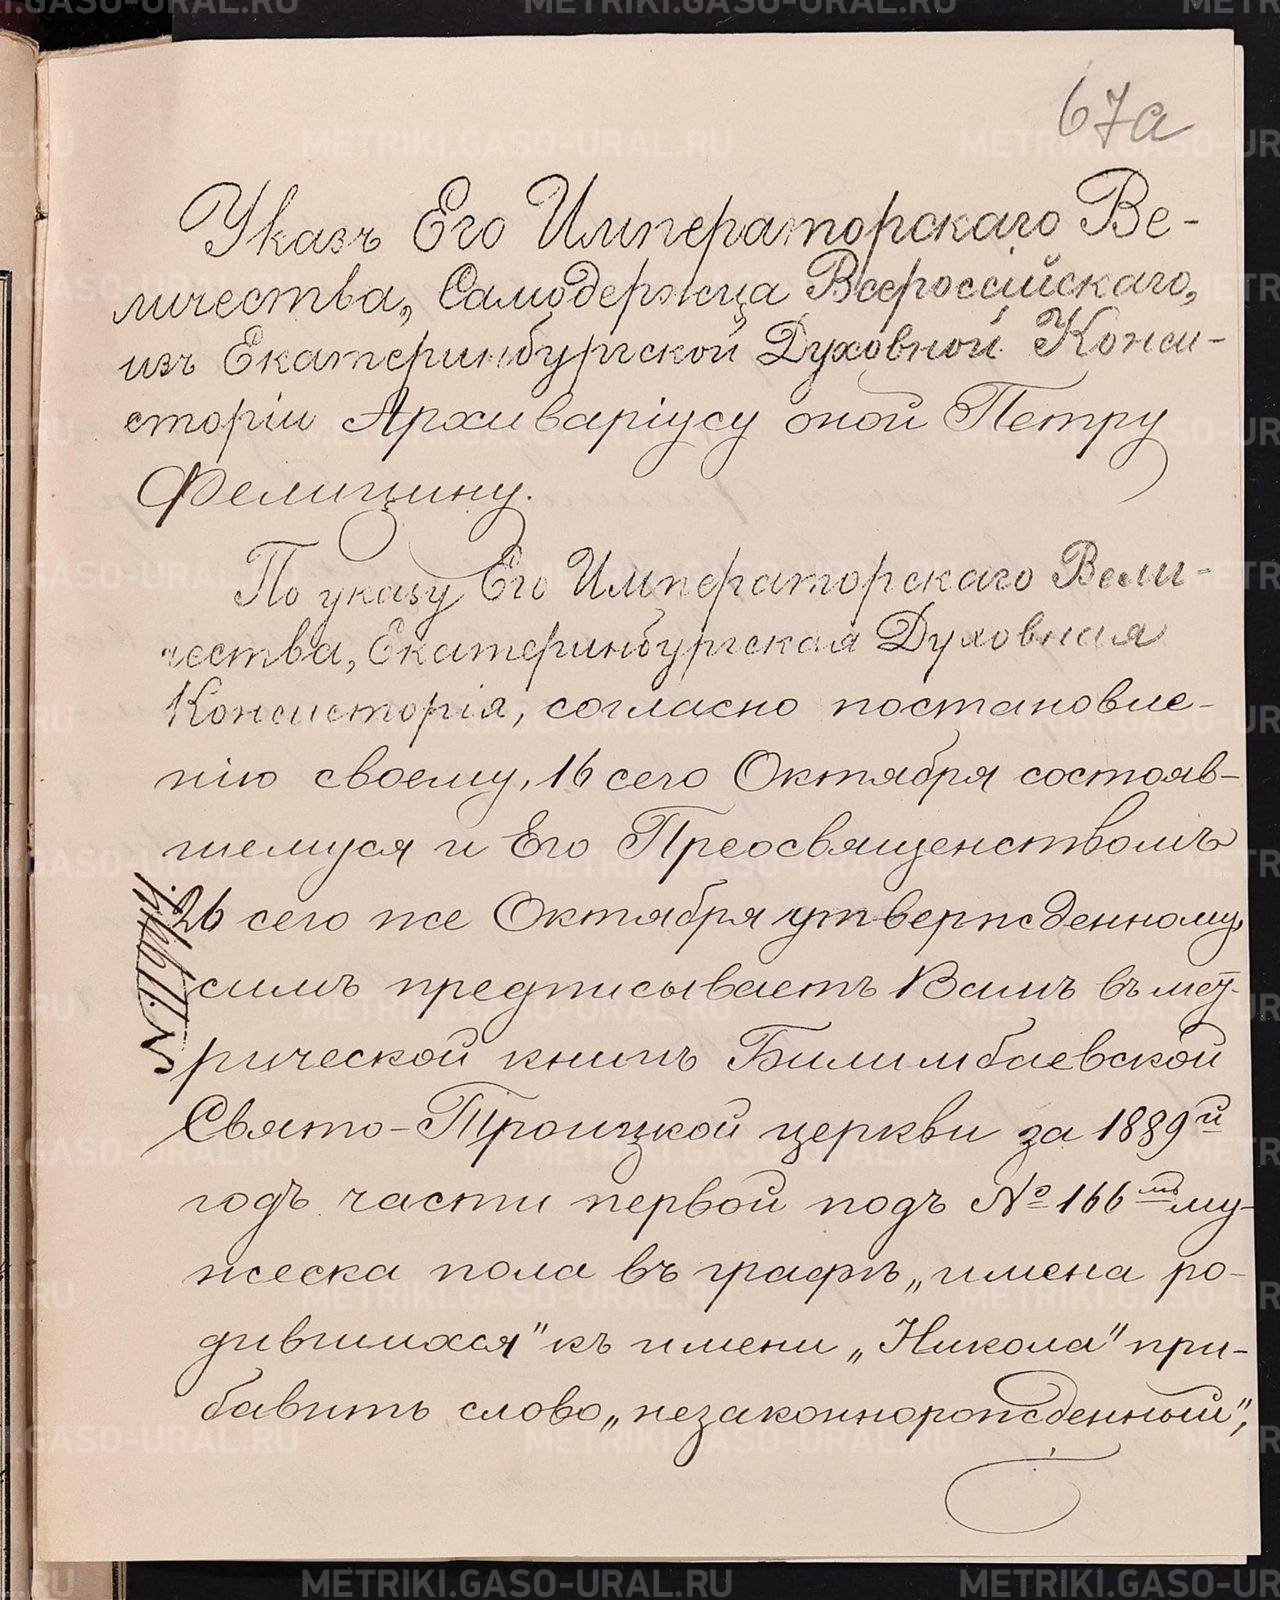 67а
Указъ Его Императорскаго Ве-
личества, Самодержца Всероссійскаго,
изъ Екатеринбургской Духовной Конси-
сторіи Архиваріусу оной Петру
Фелицину.
По указу Его Императорскаго Вели-
чества, Екатеринбургская Духовная
Консисторія, согласно постановле-
нію своему, 16 сего Октября состояв-
шемуся и Его Преосвященствомъ
26 сего же Октября утвержденному,
симъ предписываетъ Вамъ въ мет-
рической книгѣ Билимбаевской
Свято-Троицкой церкви за 1889й
годъ части первой подъ № 166мъ му-
жеска пола въ графѣ „имена ро-
дившихся" къ имени „Никола" при-
бавить слово „незаконнорожденный",
METRIKI.GASO-URAL.RU